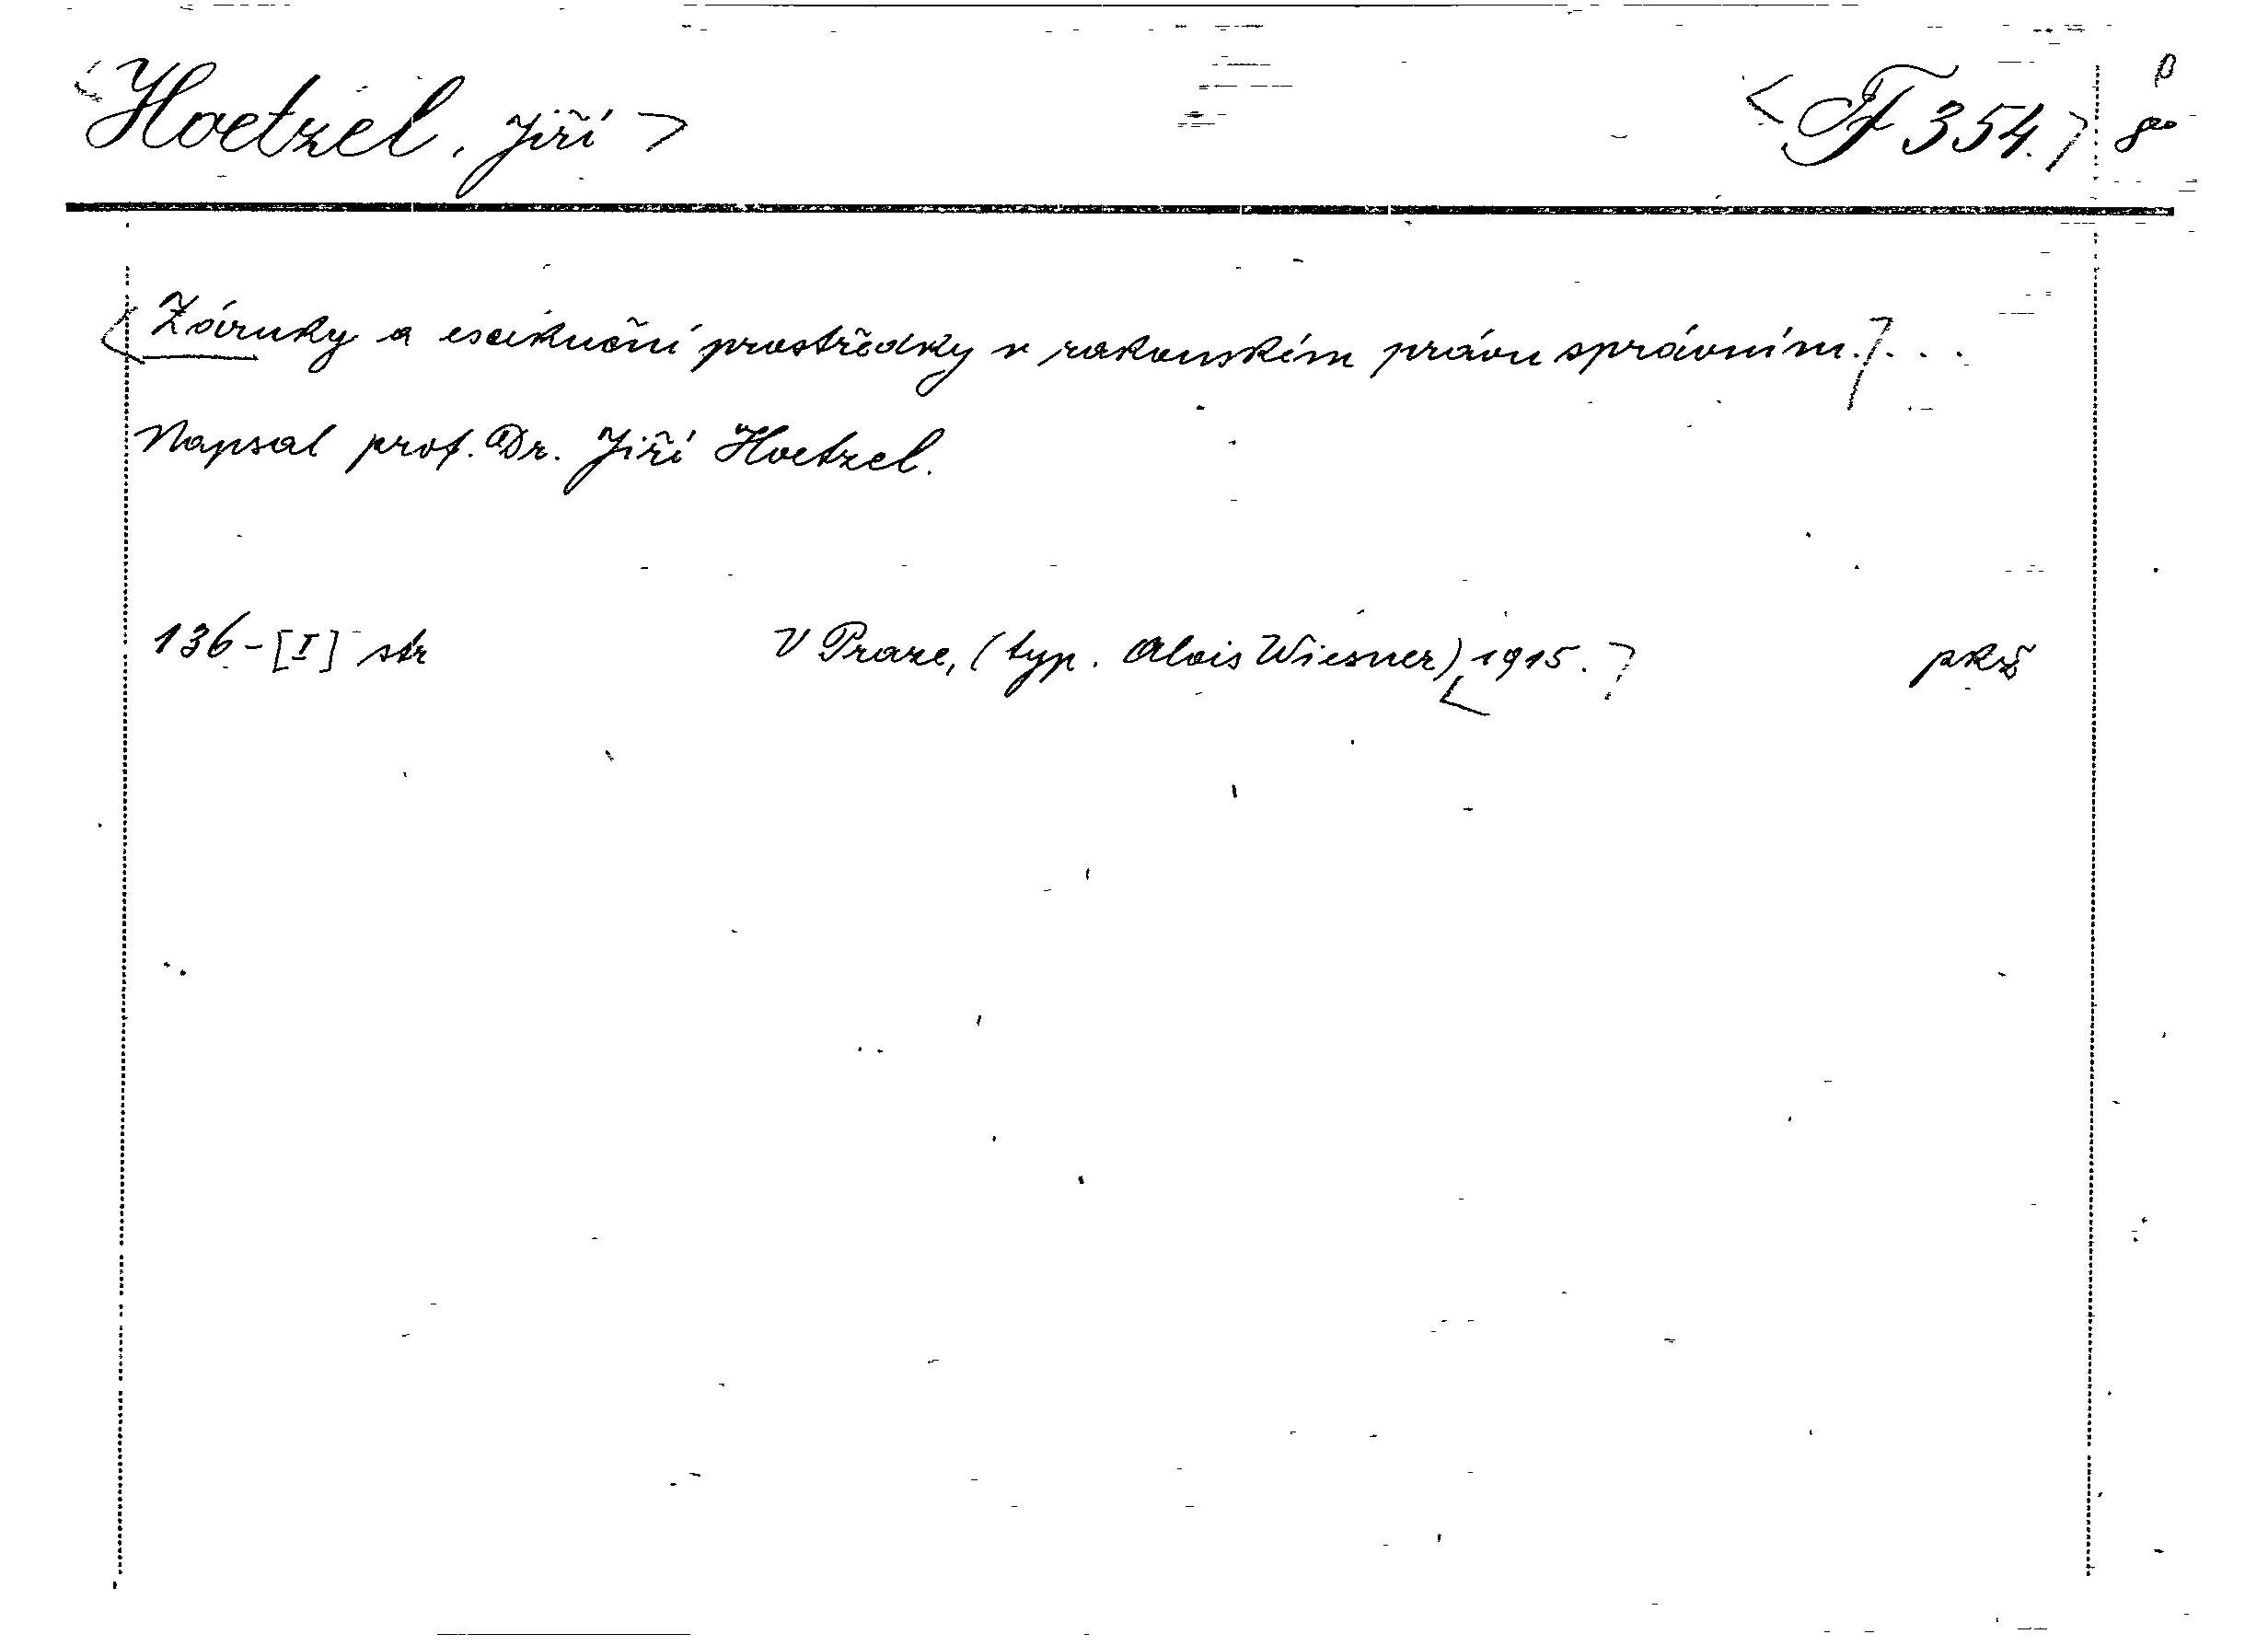 <Hoetzel, Jiří> <F 354.>
<Záruky a exekuční prostředky v rakouském právu správním.> . . .
Napsal prof. Dr. Jiří Hoetzel.
136-[I] str V Praze, (typ. Alois Wiesner) <1915.>